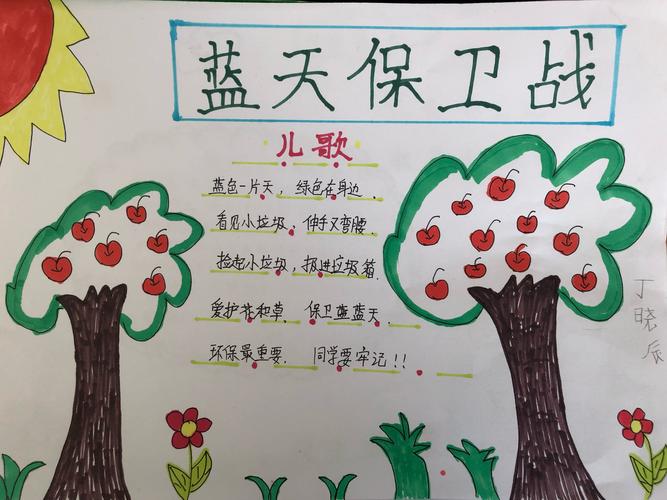 蓝天保卫战
儿歌
蓝色一片天，绿色在身边.
看见小垃圾，伸手又弯腰.
捡起小垃圾，扔进垃圾箱.
爱护花和草.保卫蓝蓝天.
环保最重要.同学要牢记!!
丁晓辰